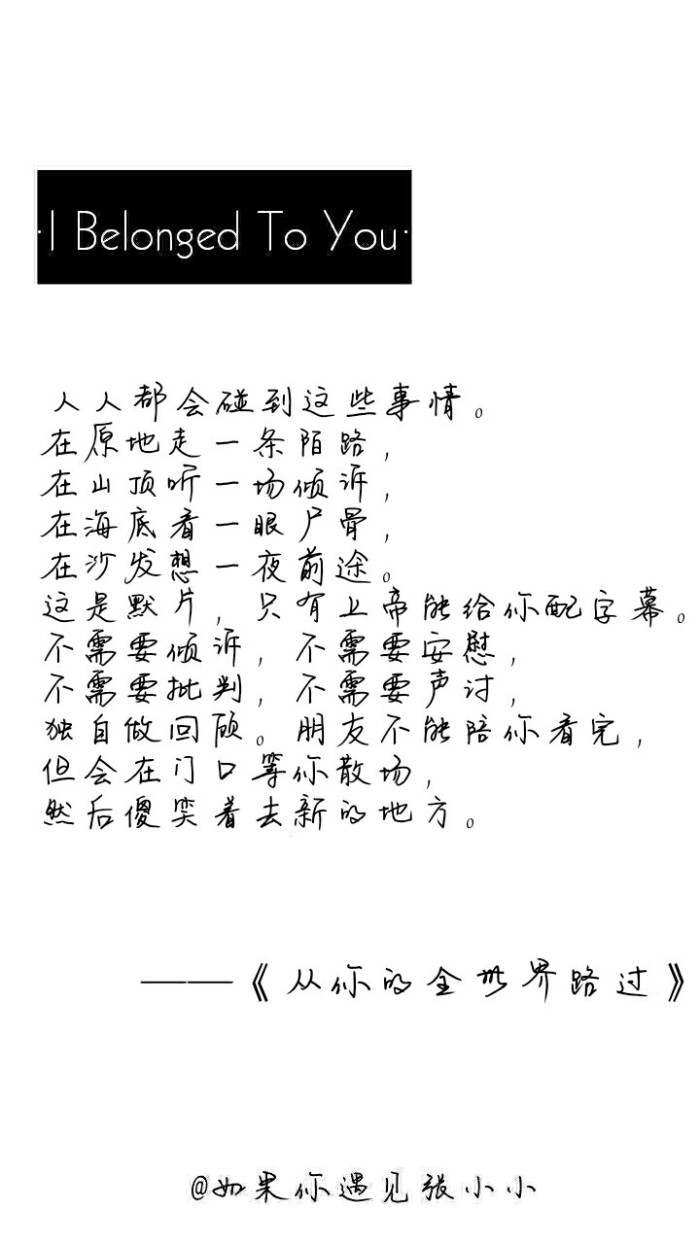 ·I Belonged To You·
人人都会碰到这些事情。
在原地走一条陌路，
在山顶听一场倾诉，
在海底看一眼尸骨，
在沙发想一夜前途。
这是默片，只有上帝能给你配字幕。
不需要倾诉，不需要安慰，
不需要批判，不需要声讨，
独自做回顾。朋友不能陪你看完，
但会在门口等你散场，
然后傻笑着去新的地方。
——《从你的全世界路过》
@如果你遇见张小小